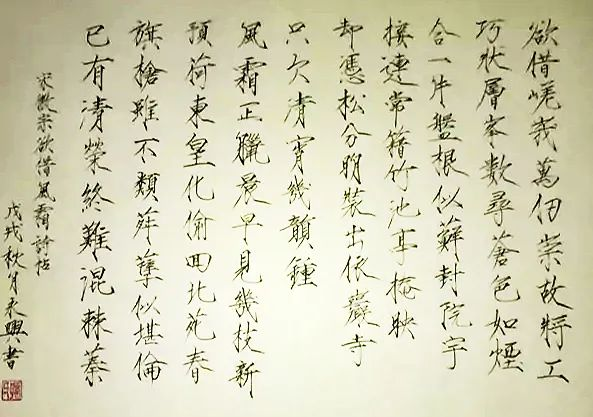 欲借嵯峩萬仞崇故將工
巧狀層峯數尋蒼色如煙
合一片盤根似蘚封院宇
接連常籍竹池亭掩映
却憑松分明裝出依巖寺
只欠清宵幾韻鍾
風霜正臘晨早見幾枝新
預荷東皇化偷回北苑春
旗槍雖不類荈蘖似堪倫
已有清榮終難混棘蓁
宋徽宗欲借風霜詩帖
戊戌秋月永興書